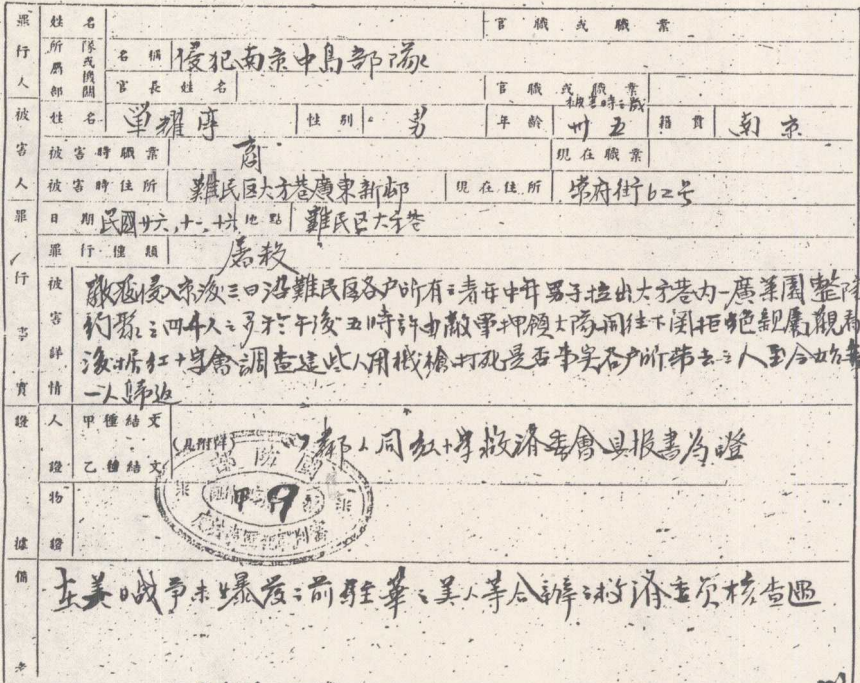 罪行人 姓名 官職或職業
所屬部隊或機關 名稱 侵犯南京中島部隊
官長姓名 官職或職業
被害人 姓名 單耀 性別 男 年齡 被害時之歲 卅五 籍貫 南京
被害時職業 商 現在職業
被害時住所 難民區大方巷廣東新邨 現在住所 常府街62号
罪行事實 日期 民國廿六,十一,十六 地點 難民区大方巷
罪行種類 屠殺
被害詳情 敵寇侵入京後三日沿難民區各户所有之青年中年男子拉出大方巷内一廣菜園整隊
約聚之四千人之多於午後五時許由敵軍押領大隊開往下関拒绝親属觀看
後據红十字會調查這些人用機槍打死是否事实各户所带去之人至今始無
一人歸返
證據 人證 甲種結文 乙種結文 (見附件) 鄰人同红十字救濟委會具报書為證
國防部
甲 9
物證
備考 在美日战争未爆发之前駐華之美人等合辦之救济委员核查過